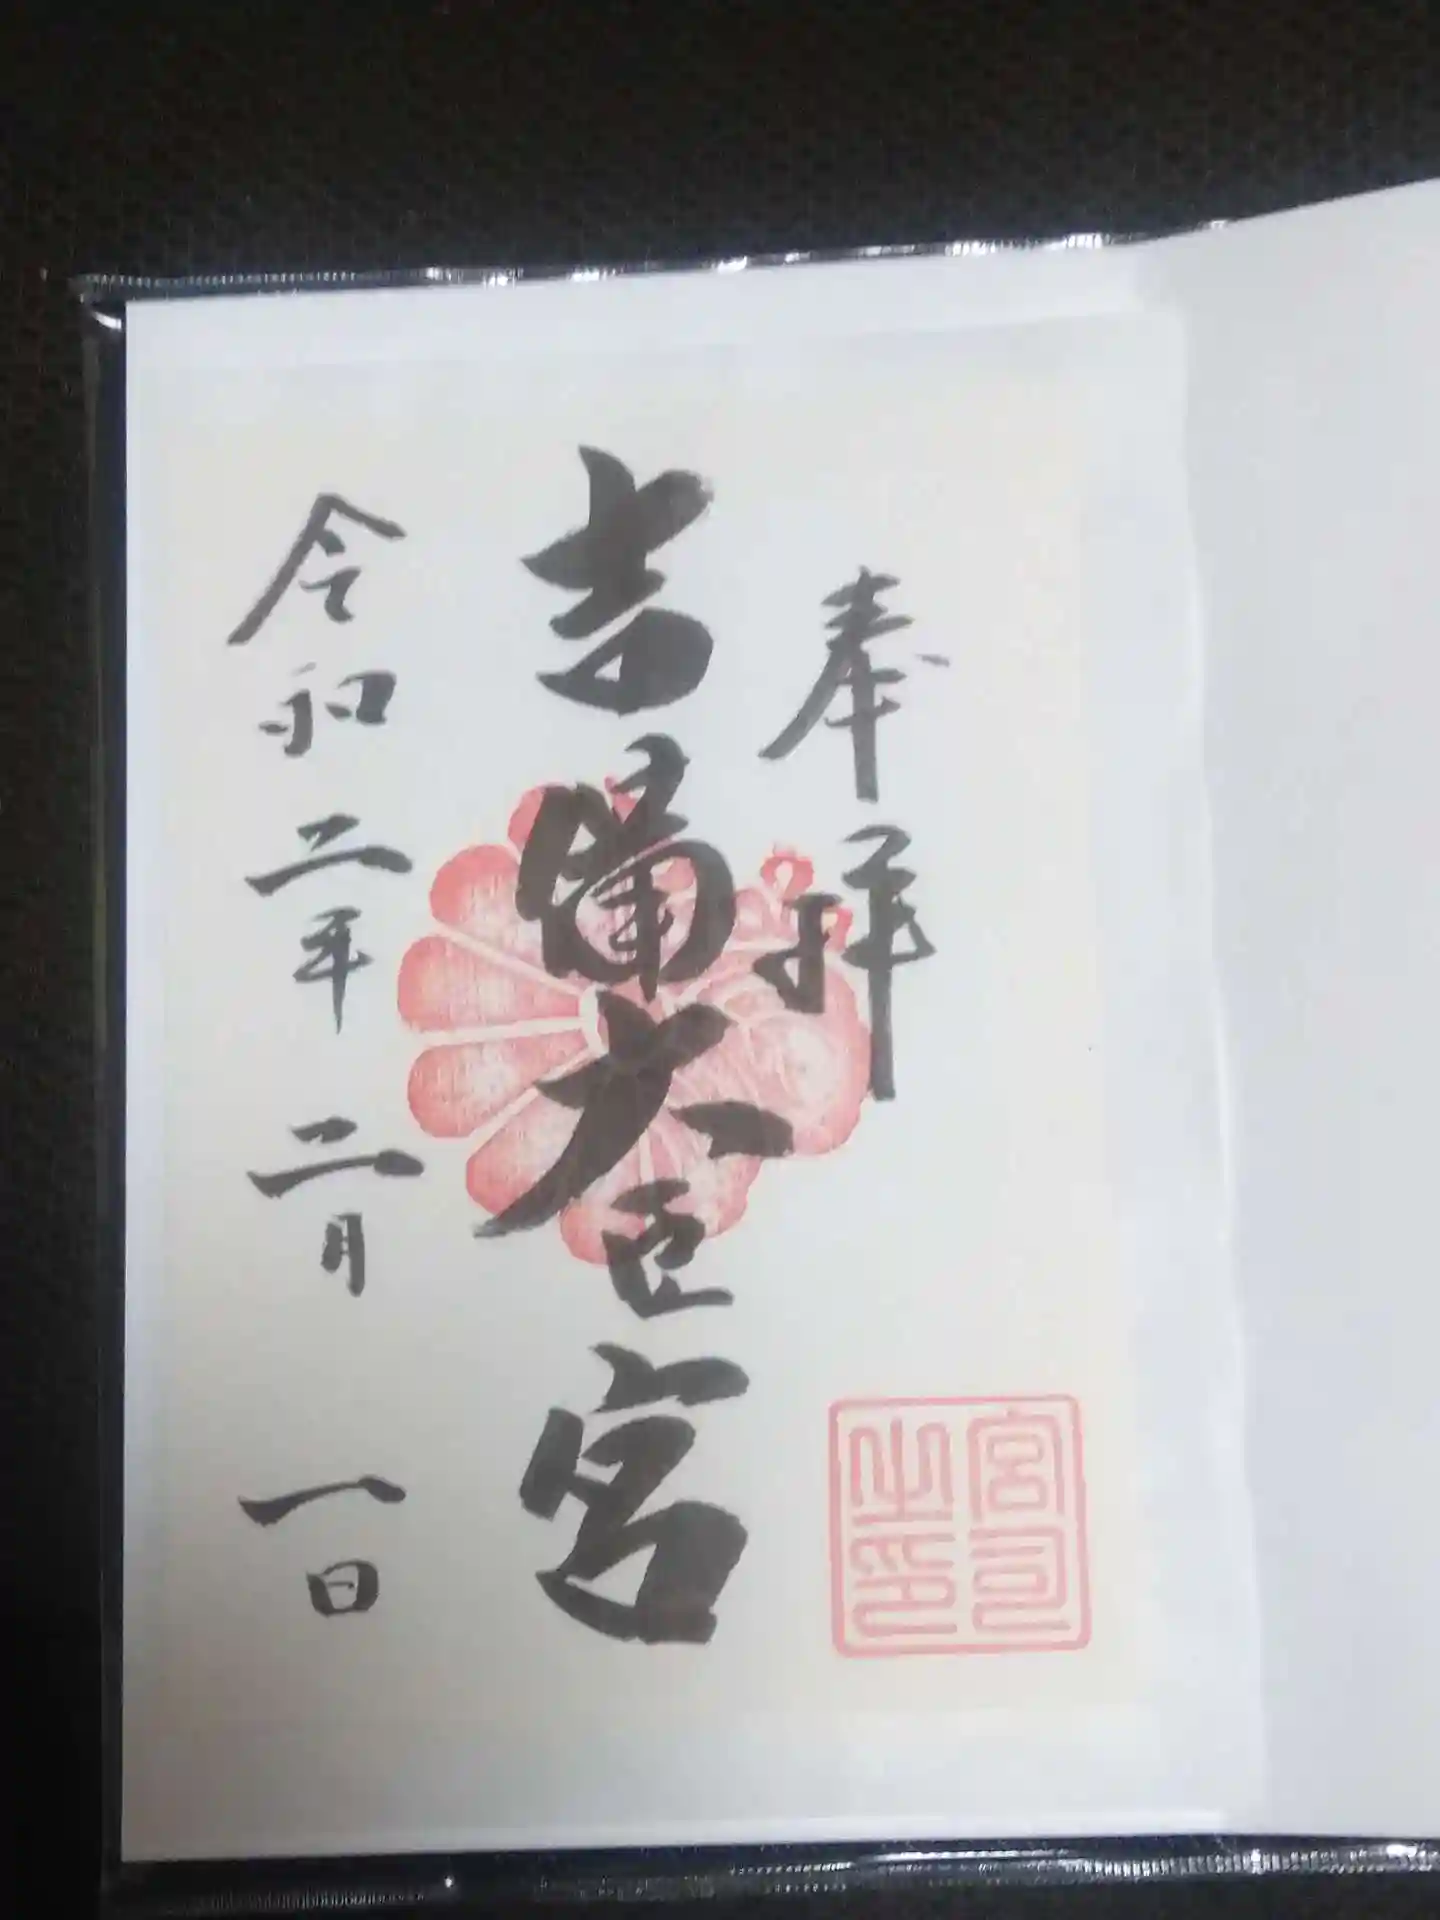 奉拝
吉備大臣宮
令和二年二月一日
宮司
之印